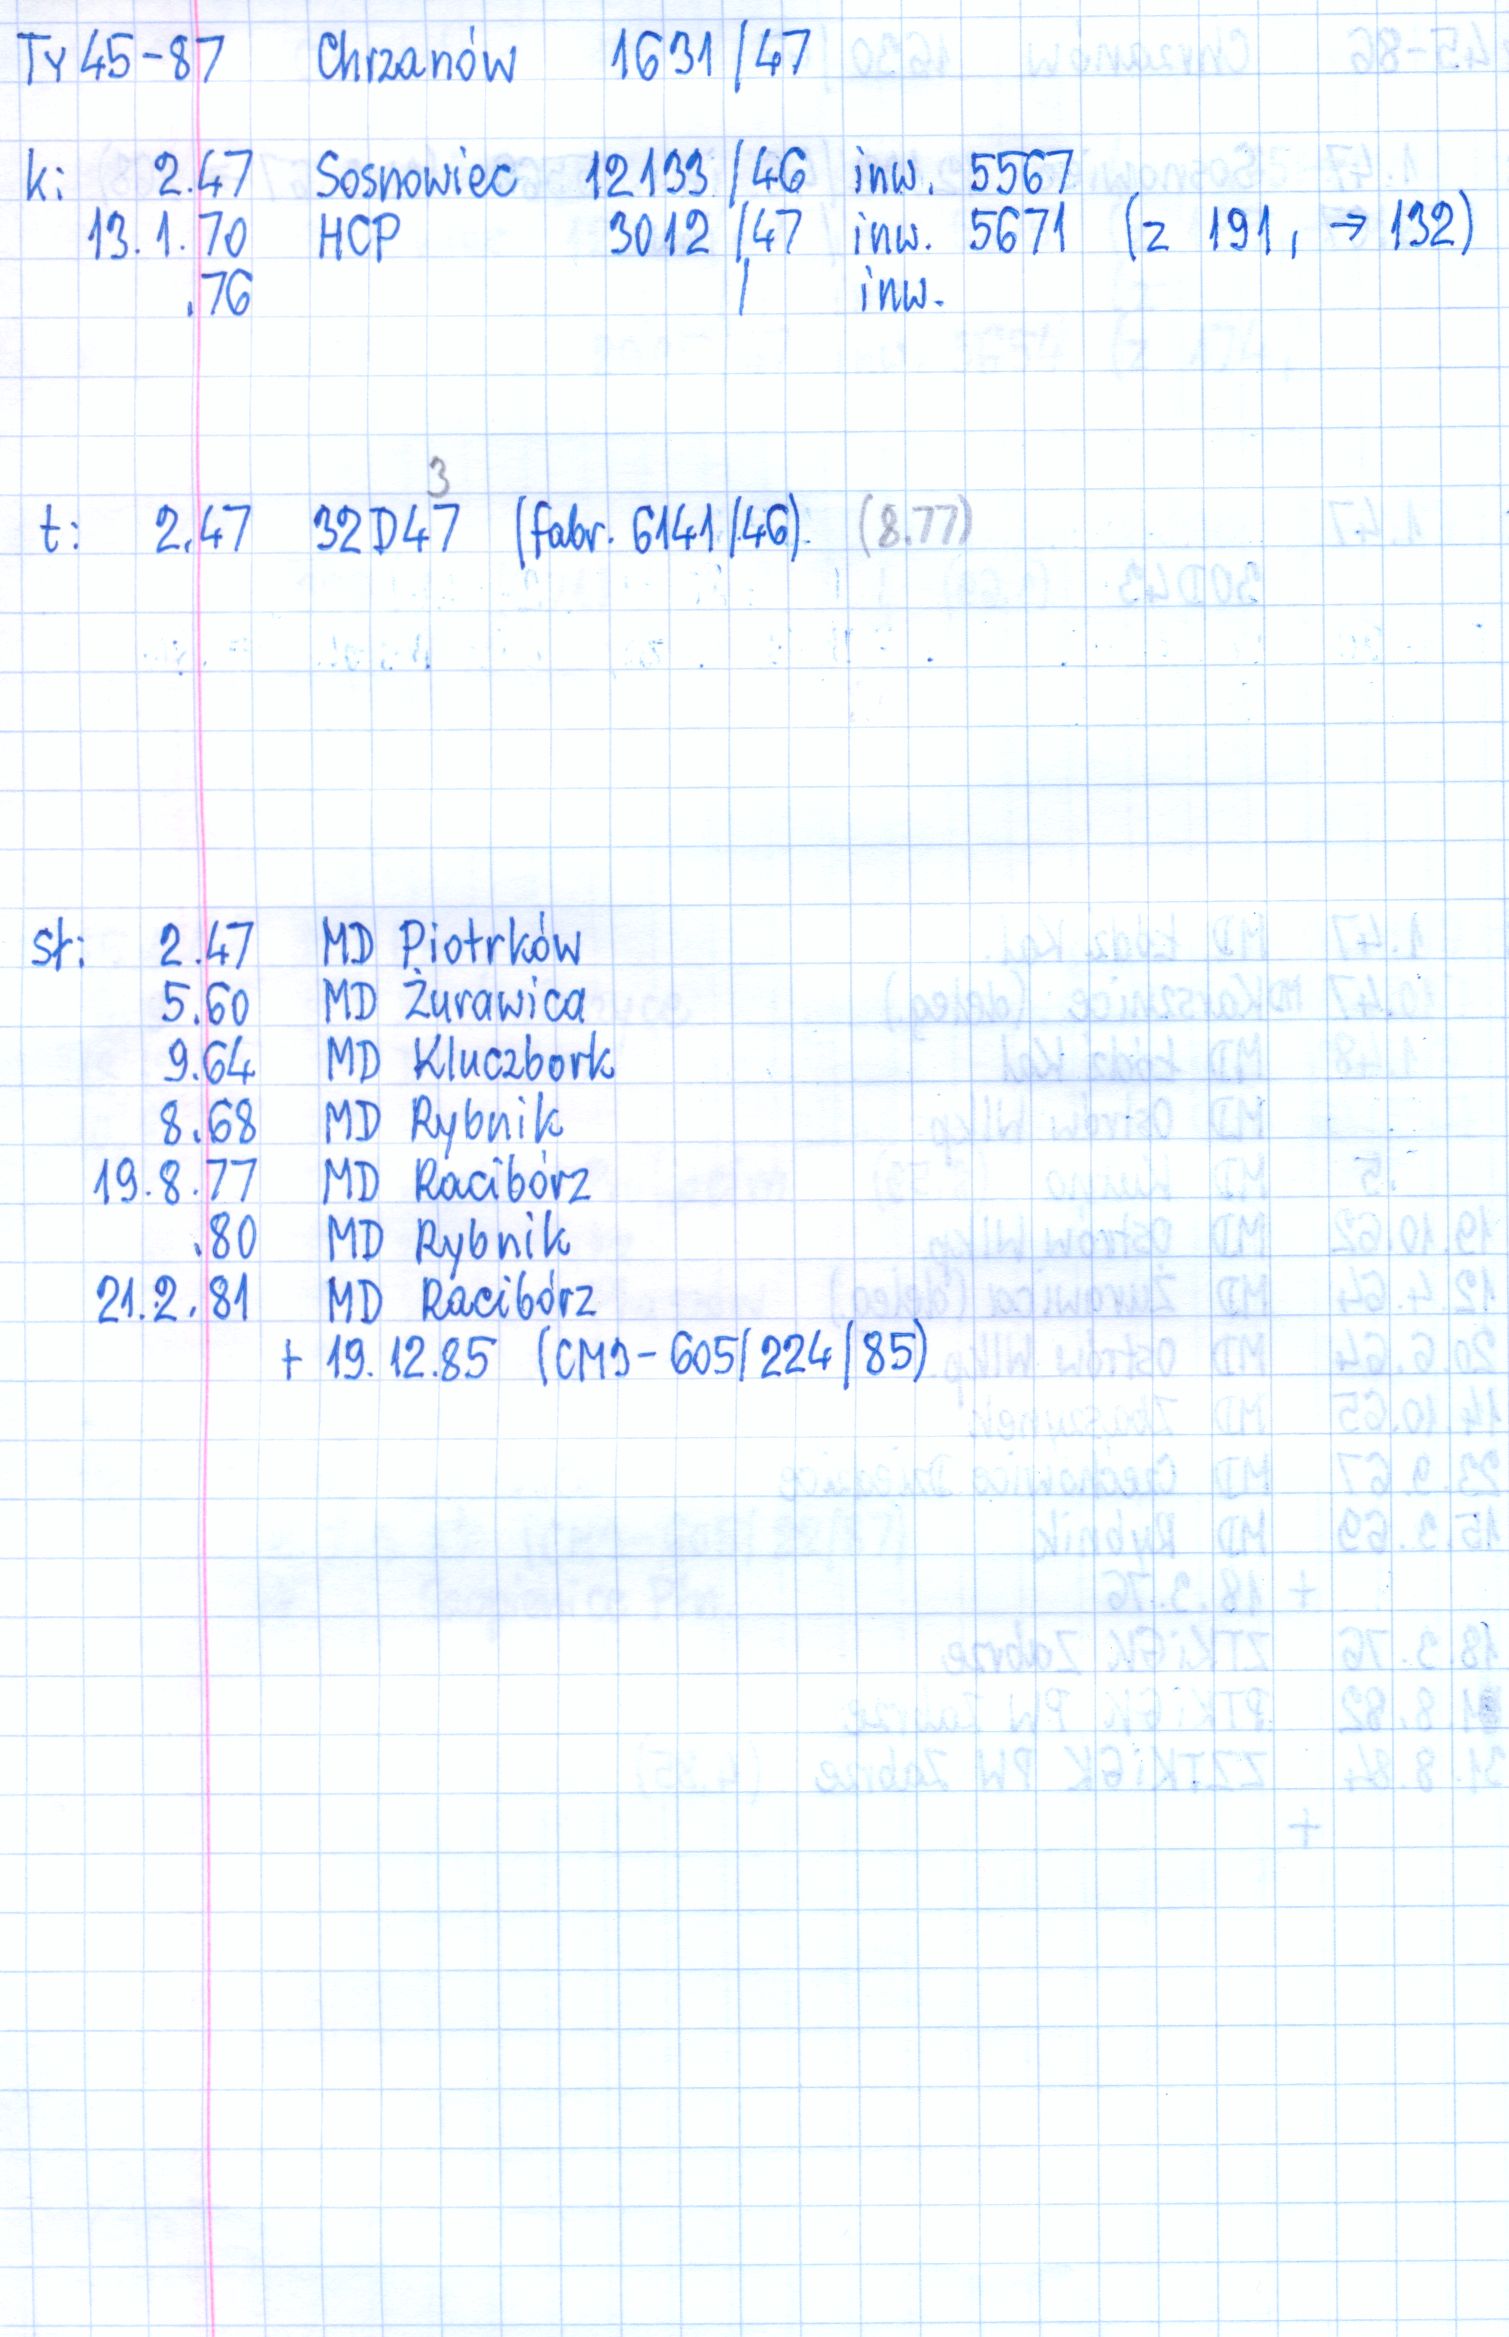 Ty45-87 Chrzanów 1631/47
k: 2.47 Sosnowiec 12133/46 inw. 5567
13.1.70 HCP 3012/47 inw. 5671 (z 191, → 132)
.76 / inw.
3
t: 2.47 32D47 (fabr. 6141/46). (8.77)
st: 2.47 MD Piotrków
5.60 MD Żurawica
9.64 MD Kluczbork
8.68 MD Rybnik
19.8.77 MD Racibórz
.80 MD Rybnik
21.2.81 MD Racibórz
+ 19.12.85 (CM9-605/224/85)